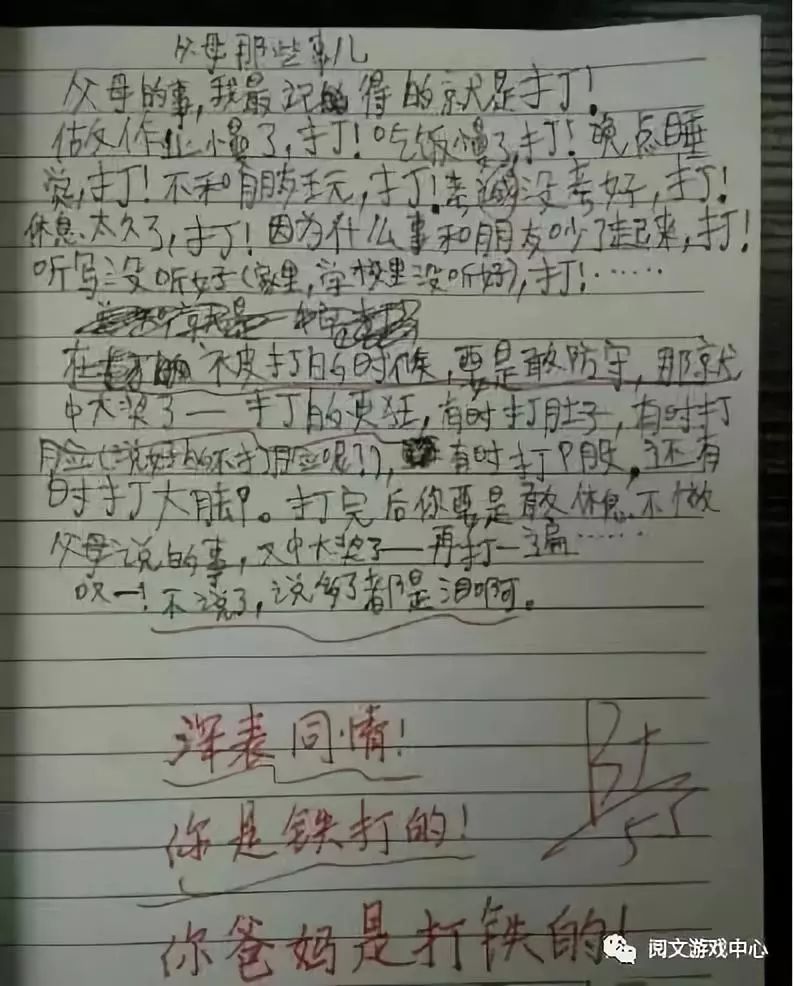 父母那些事儿
父母的事,我最记得的就是打!
估反作业慢了,打!吃饭慢了,打!晚点睡
觉,打!不和朋友玩,打!考没考好,打!
休息太久了,打!因为什么事和朋友吵了起来,打!
听写没听好(家里,学校里没听好),打!……
在被打的时候,要是敢防守,那就
中大奖了——打的更狂,有时打肚子,有时打
脸(说好的不打脸呢?),有时打P股,还有
时打大腿。打完后你要是敢休息、不做
父母说的事,又中大奖了——再打一遍……
哎—!不说了,说多了都是泪啊。
深表同情!
你是铁打的!
你爸妈是打铁的!
B+
阅文游戏中心